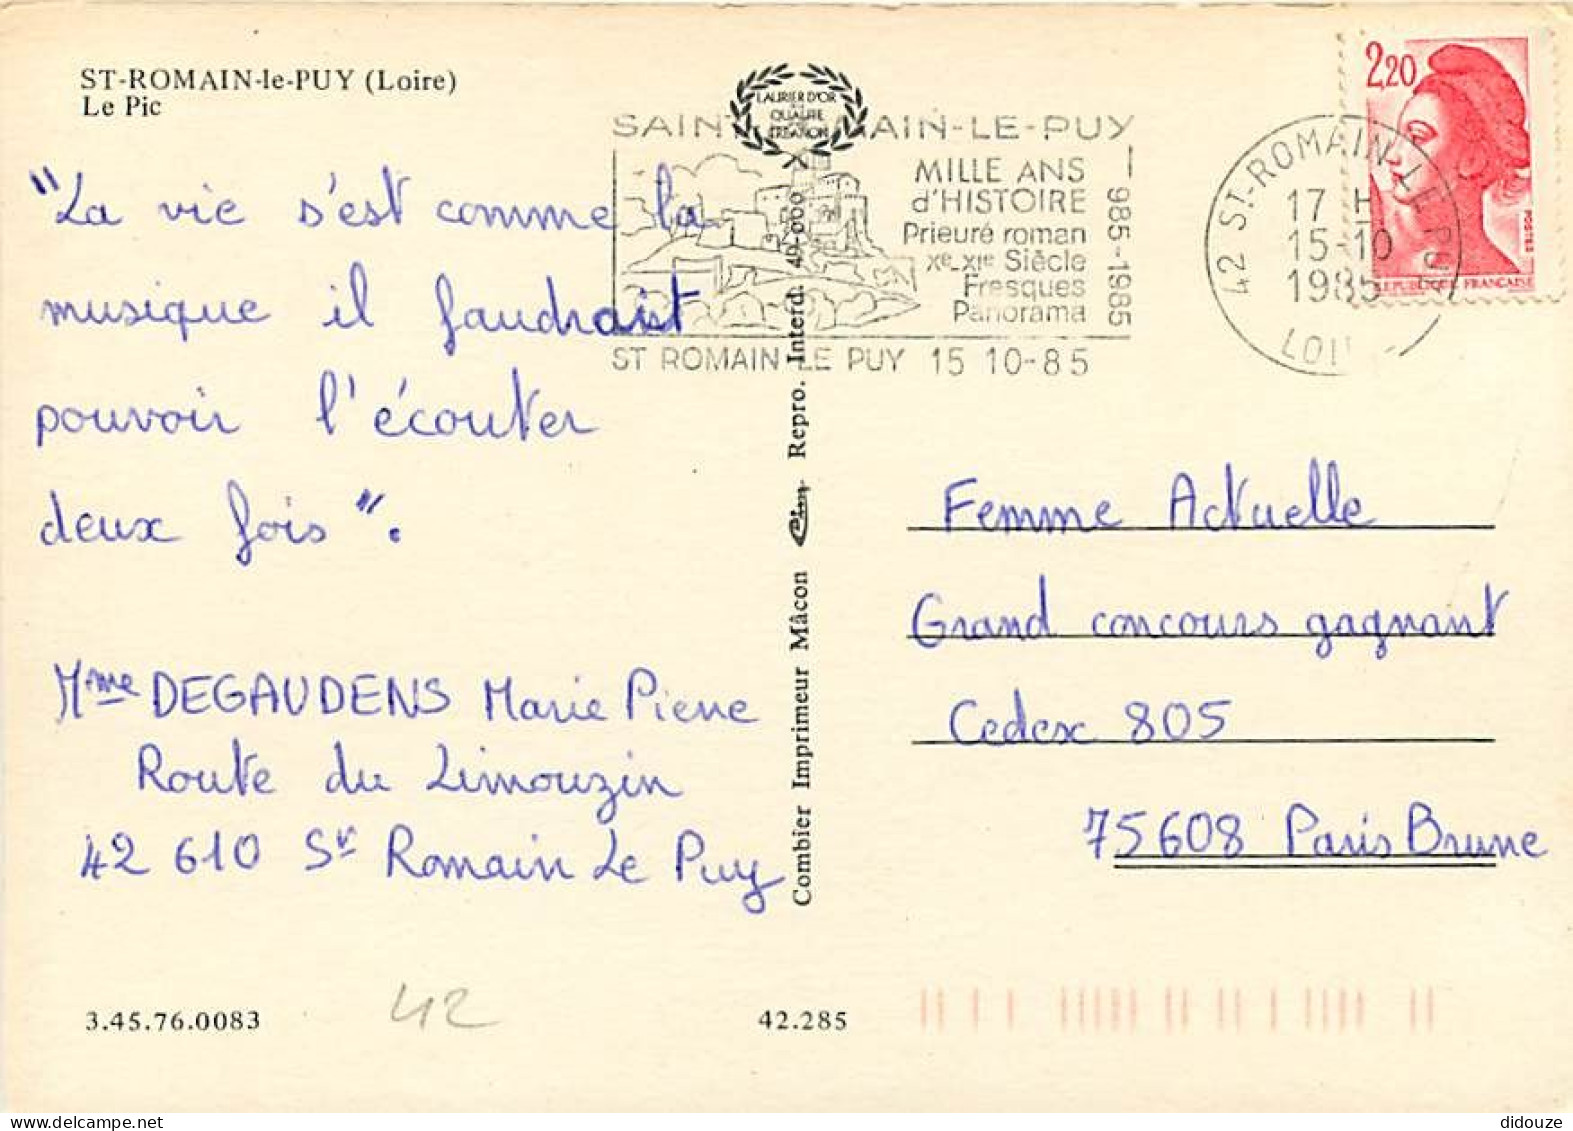 ST-ROMAIN-le-PUY (Loire)
Le Pic
"La vie s'est comme la
musique il faudrait
pouvoir l'écouter
deux fois".
Mme DEGAUDENS Marie Pierre
Route du Limouzin
42 610 St Romain Le Puy
3.45.76.0083
42
42.285
Combier Imprimeur Mâcon
Repro. Interd. 49-000
LAURIER D'OR
QUALITE
CREATION
SAINT ROMAIN-LE-PUY
MILLE ANS
d'HISTOIRE
Prieuré roman
Xe-XIe Siècle
Fresques
Panorama
985-1985
ST ROMAIN LE PUY 15 10-85
42 ST-ROMAIN-LE PUY
17 H
15-10
1985
LOIRE
2,20
POSTES
REPUBLIQUE FRANÇAISE
Femme Actuelle
Grand concours gagnant
Cedex 805
75608 Paris Brune
didouze